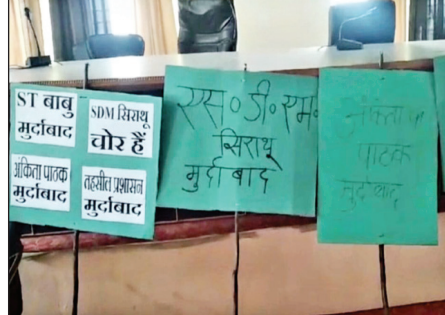 ST बाबु
मुर्दाबाद
SDM सिराथू
चोर हैं
अंकिता पाठक
मुर्दाबाद
तहसील प्रशासन
मुर्दाबाद
एस० डी० एम०
सिराथू
मुर्दाबाद
अंकिता
पाठक
मुर्दाबाद